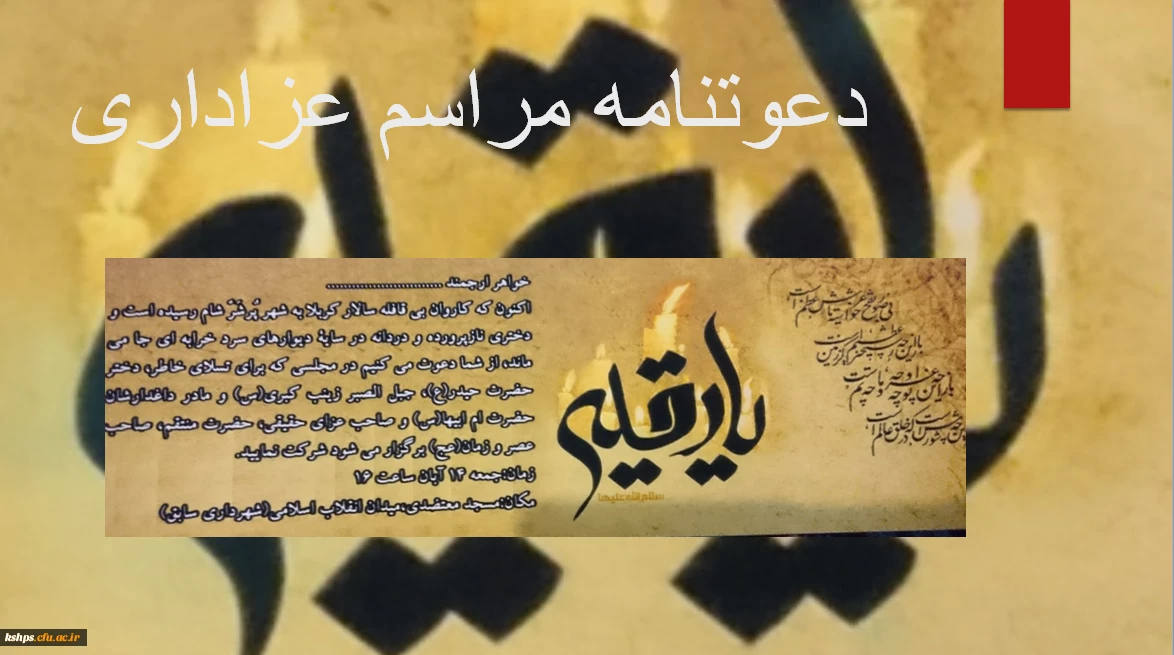 دعوتنامه مراسم عزاداری
خواهر ارجمند ............................
اکنون که کاروان بی قافله سالار کربلا به شهر پُرشَرّ شام رسیده است و
دختری نازپرورده و دردانه در سایهٔ دیوارهای سرد خرابه ای جا می
ماند، از شما دعوت می کنیم در مجلسی که برای تسلای خاطر، دختر
حضرت حیدر(ع)، جبل الصبر زینب کبری(س) و مادر داغدارشان
حضرت ام ابیها(س) و صاحب عزای حقیقی، حضرت منتقم، صاحب
عصر و زمان(عج) برگزار می شود شرکت نمایید.
زمان:جمعه ۱۴ آبان ساعت ۱۶
مکان:مسجد معتضدی،میدان انقلاب اسلامی(شهرداری سابق)
یا رقیه
سلام الله علیها
باز این چه شورش است که در خلق عالم است
kshps.cfu.ac.ir